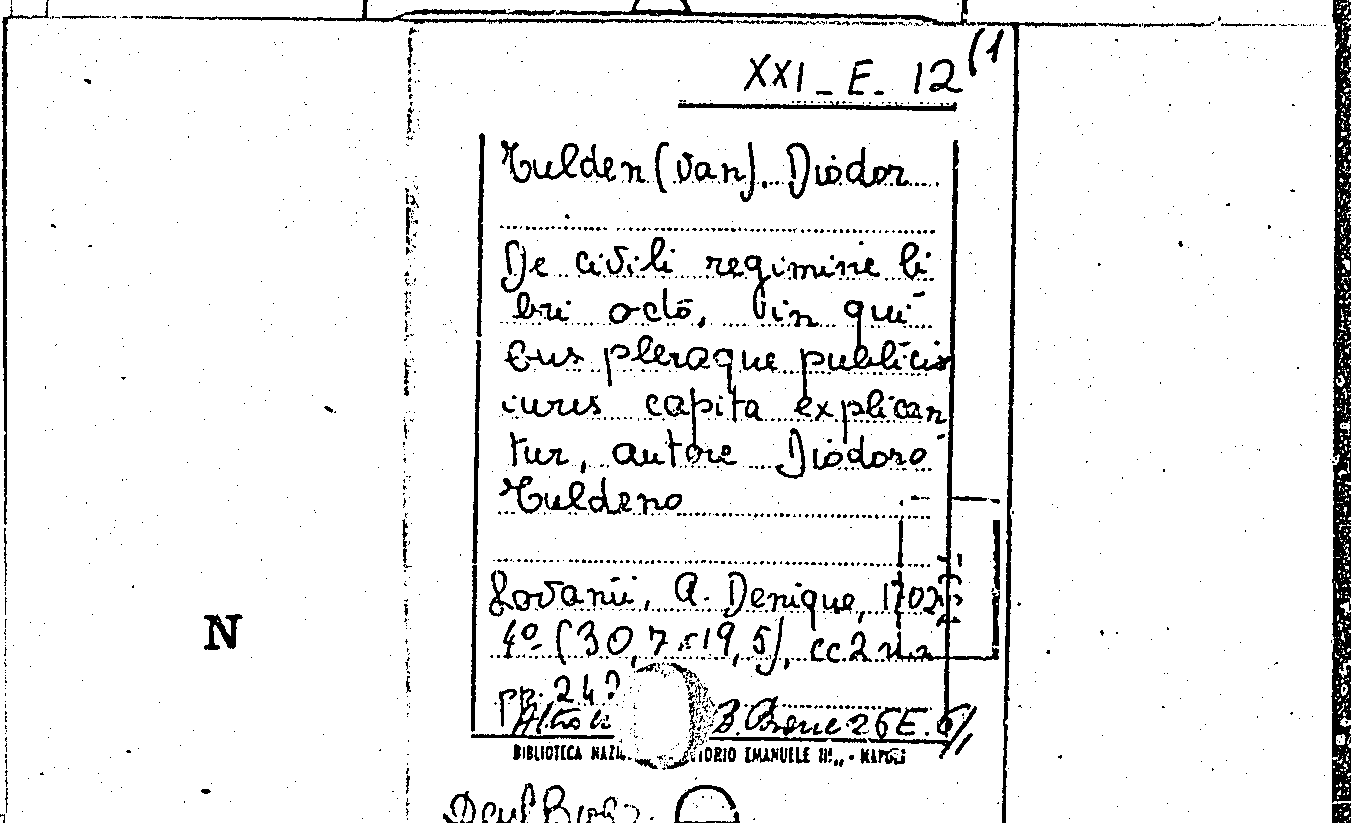 XXI - E. 12 (1
Tulden (van), Diodor
De civili regimine li
bri octo, in qui
bus pleraque publicis
iuris capita explican
tur, autore Diodoro
Tuldeno
Lovanii, A. Denique, 1702
4º (30,7 x 19,5), cc 2 n.n
pp. 242
B. Branc 26 E. 6/
BIBLIOTECA NAZI TORIO EMANUELE III,, - NAPOLI
N